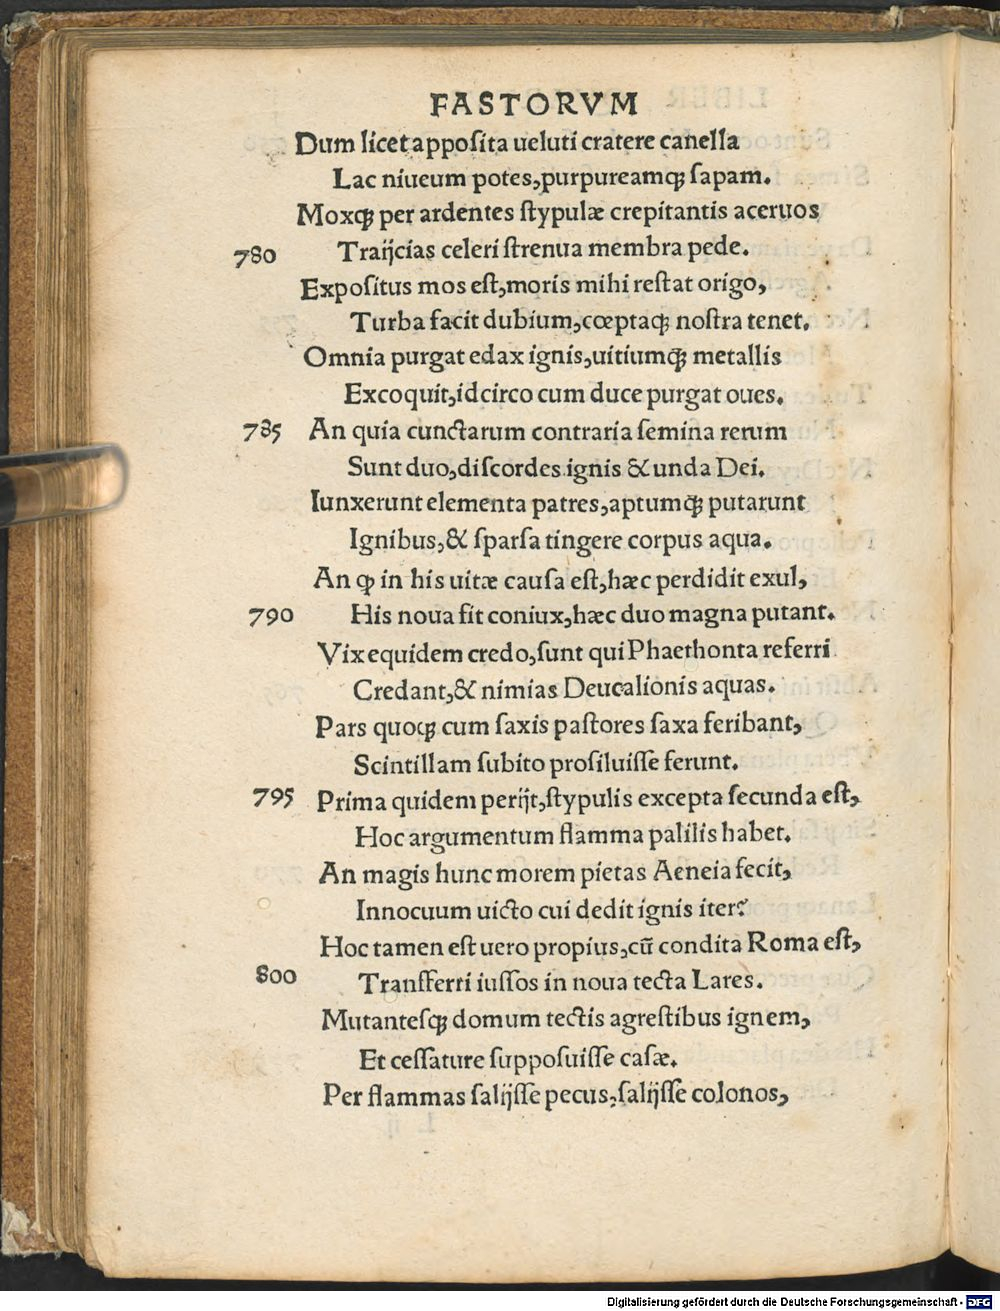 FASTORVM
Dum licet apposita ueluti cratere canella
Lac niueum potes, purpureamqꝫ sapam.
Moxqꝫ per ardentes stypulæ crepitantis aceruos
780 Traijcias celeri strenua membra pede.
Expositus mos est, moris mihi restat origo,
Turba facit dubium, cœptaqꝫ nostra tenet.
Omnia purgat edax ignis, uitiumqꝫ metallis
Excoquit, idcirco cum duce purgat oues.
785 An quia cunctarum contraria semina rerum
Sunt duo, discordes ignis & unda Dei.
Iunxerunt elementa patres, aptumqꝫ putarunt
Ignibus, & sparsa tingere corpus aqua.
An ꝙ in his uitæ causa est, hæc perdidit exul,
790 His noua fit coniux, hæc duo magna putant.
Vix equidem credo, sunt qui Phaethonta referri
Credant, & nimias Deucalionis aquas.
Pars quoqꝫ cum saxis pastores saxa feribant,
Scintillam subito prosiluisse ferunt.
795 Prima quidem perijt, stypulis excepta secunda est,
Hoc argumentum flamma palilis habet.
An magis hunc morem pietas Aeneia fecit,
Innocuum uicto cui dedit ignis iter?
Hoc tamen est uero propius, cū condita Roma est,
800 Transferri iussos in noua tecta Lares.
Mutantesqꝫ domum tectis agrestibus ignem,
Et cessature supposuisse casæ.
Per flammas salijsse pecus, salijsse colonos,
Digitalisierung gefördert durch die Deutsche Forschungsgemeinschaft - DFG